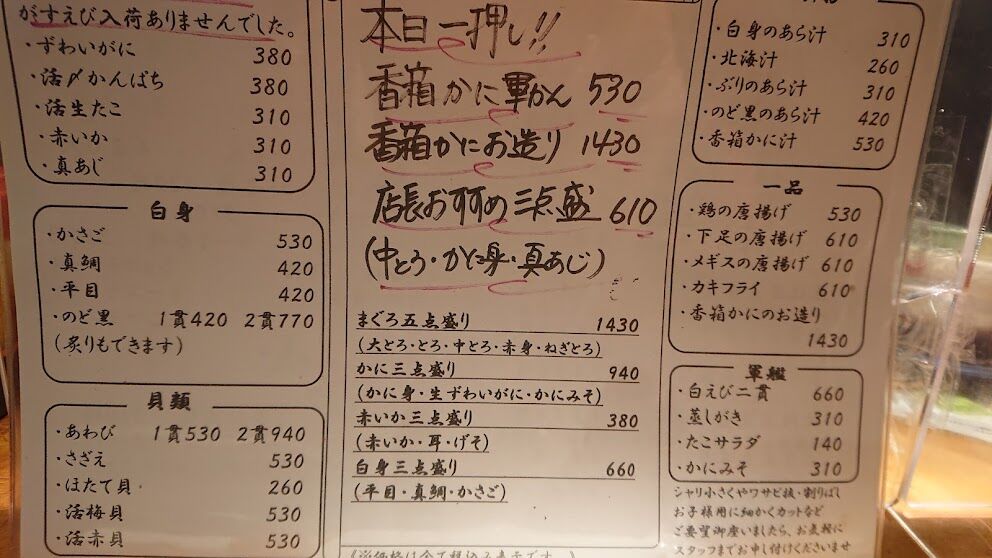 がすえび入荷ありませんでした。
・ずわいがに 380
・活〆かんぱち 380
・活生たこ 310
・赤いか 310
・真あじ 310
白身
・かさご 530
・真鯛 420
・平目 420
・のど黒 1貫420 2貫770
(炙りもできます)
貝類
・あわび 1貫530 2貫940
・さざえ 530
・ほたて貝 260
・活梅貝 530
・活赤貝 530
本日一押し!!
香箱かに軍かん 530
香箱かにお造り 1430
店長おすすめ三点盛 610
(中とろ・かに身・真あじ)
まぐろ五点盛り 1430
(大とろ・とろ・中とろ・赤身・ねぎとろ)
かに三点盛り 940
(かに身・生ずわいがに・かにみそ)
赤いか三点盛り 380
(赤いか・耳・げそ)
白身三点盛り 660
(平目・真鯛・かさご)
・白身のあら汁 310
・北海汁 260
・ぶりのあら汁 310
・のど黒のあら汁 420
・香箱かに汁 530
一品
・鶏の唐揚げ 530
・下足の唐揚げ 610
・メギスの唐揚げ 610
・カキフライ 610
・香箱かにのお造り
1430
軍艦
・白えび二貫 660
・蒸しがき 310
・たこサラダ 140
・かにみそ 310
シャリ小さくやワサビ抜・割りばし
お子様用に細かくカットなど
ご要望御座いましたら、お気軽に
スタッフまでお申し付けくださいませ